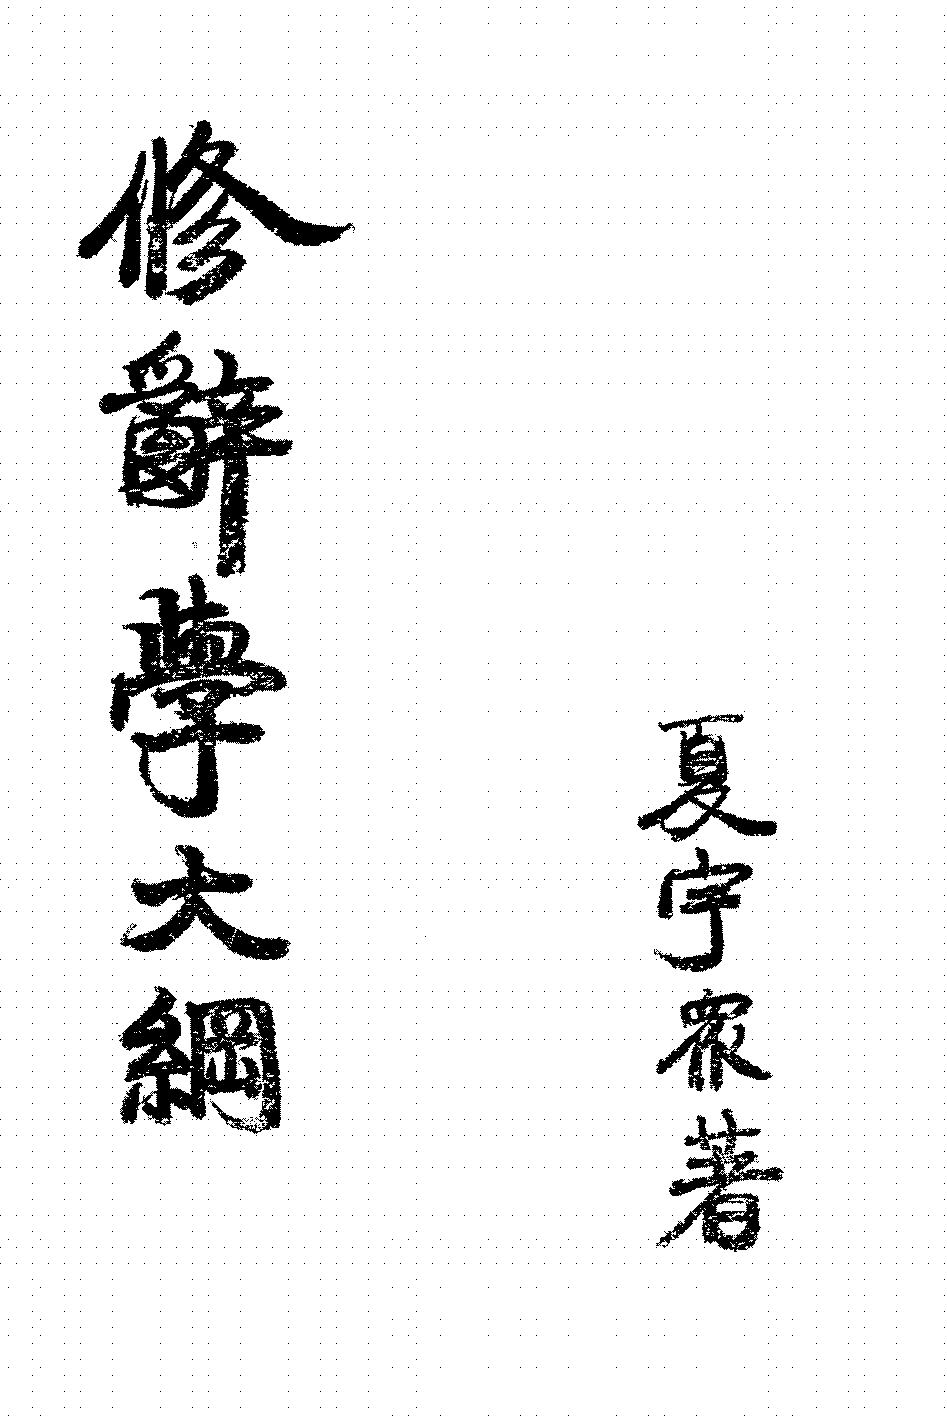 夏宇眾著
修辭學大綱